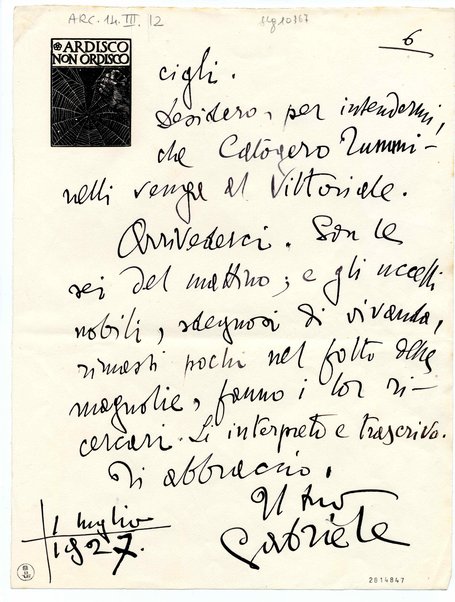 ARC. 14. III. /2
6
ARDISCO
NON ORDISCO
cigli.
Desidero, per intendermi,
che Calògero Tummi-
nelli venga al Vittoriale.
Arrivederci. Son le
sei del mattino; e gli uccelli
nobili, sdegnosi di vivanda,
rimasti pochi nel folto delle
magnolie, fanno i lor ri-
cercari. Li interpreto e trascrivo.
Ti abbraccio.
Il tuo
Gabriele
1 luglio
1927.
2814847